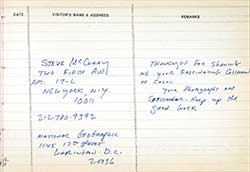 DATE VISITOR'S NAME & ADDRESS REMARKS
STEVE McCURRY
TWO FIFTH AVE
APT. 17-L
NEW YORK, N.Y.
10011
212-780-9392
NATIONAL GEOGRAPHIC
1145 17th STREET
WASHINGTON D.C.
20036
THANK YOU FOR SHOWING
ME YOUR FASCINATING COLLECTION
OF
YOUR PHOTOGRAPHS ARE
SPECTACULAR - KEEP UP THE
GOOD WORK